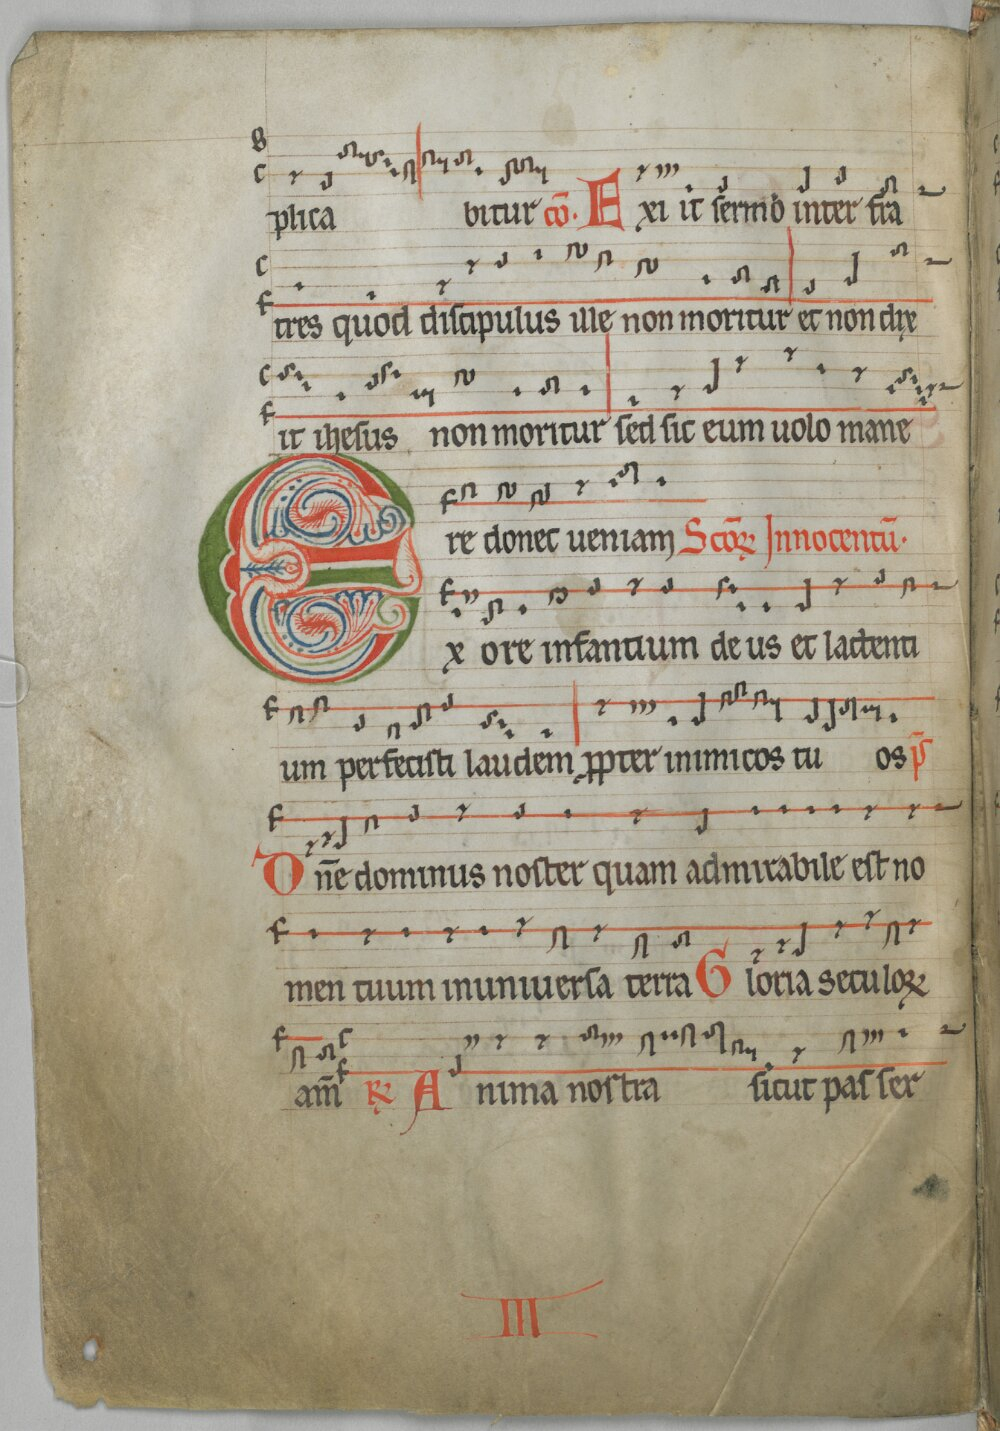 plica bitur cō. E xi it sermo inter fra
tres quod discipulus ille non moritur et non dix
it ihesus non moritur sed sic eum uolo mane
re donec ueniam Scōꝝ Innocentū.
E x ore infantium de us et lactenti
um perfecisti laudem ꝓpter inimicos tu os p̄s
D n̄e dominus noster quam admirabile est no
men tuum inuniuersa terra G loria seculoꝝ
am̄ ℟ A nima nostra sicut pas ser
III